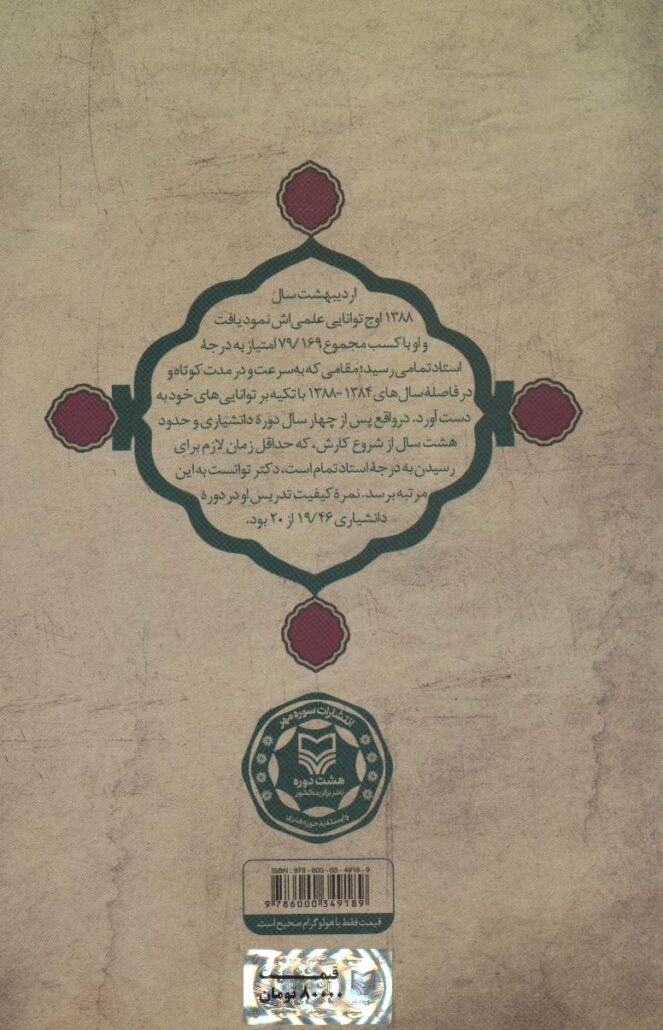 اردیبهشت سال
۱۳۸۸ اوج توانایی علمی‌اش نمود یافت
و او با کسب مجموع ۷۹/۱۶۹ امتیاز به درجهٔ
استاد تمامی رسید؛ مقامی که به سرعت و در مدت کوتاه و
در فاصلهٔ سال‌های ۱۳۸۴-۱۳۸۸ با تکیه بر توانایی‌های خود به
دست آورد. درواقع پس از چهار سال دورهٔ دانشیاری و حدود
هشت سال از شروع کارش، که حداقل زمان لازم برای
رسیدن به درجهٔ استاد تمام است، دکتر توانست به این
مرتبه برسد. نمرهٔ کیفیت تدریس او در دورهٔ
دانشیاری ۱۹/۴۶ از ۲۰ بود.
انتشارات سوره مهر
هشت دوره
ناشر برگزیده کشور
وابسته به حوزه هنری
ISBN: 978-600-03-4918-9
9 786000 349189
قیمت فقط با هولوگرام صحیح است.
قیمت
۸۰۰۰۰ تومان